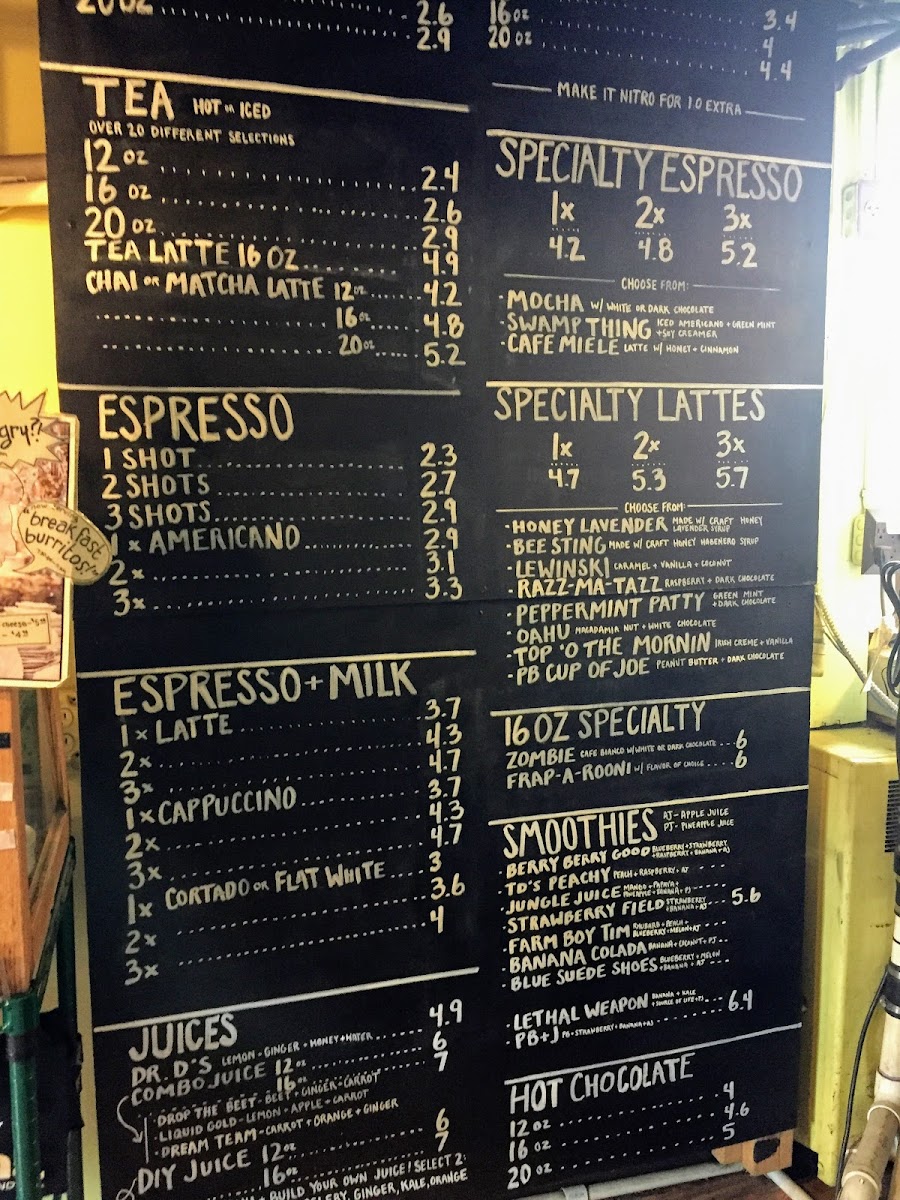 20 OZ
2.6
2.9
16 OZ
20 OZ
3.4
4
4.4
MAKE IT NITRO FOR 1.0 EXTRA
TEA HOT OR ICED
OVER 20 DIFFERENT SELECTIONS
12 OZ 2.4
16 OZ 2.6
20 OZ 2.9
TEA LATTE 16 OZ 4.9
CHAI OR MATCHA LATTE 12 OZ 4.2
16 OZ 4.8
20 OZ 5.2
ESPRESSO
1 SHOT 2.3
2 SHOTS 2.7
3 SHOTS 2.9
1x AMERICANO 2.9
2x 3.1
3x 3.3
ESPRESSO + MILK
1x LATTE 3.7
2x 4.3
3x 4.7
1x CAPPUCCINO 3.7
2x 4.3
3x 4.7
1x CORTADO OR FLAT WHITE 3
2x 3.6
3x 4
JUICES
DR. D'S LEMON - GINGER - HONEY + WATER 4.9
COMBO JUICE 12 OZ 6
16 OZ 7
- DROP THE BEET - BEET + GINGER + CARROT
- LIQUID GOLD - LEMON + APPLE + CARROT
- DREAM TEAM - CARROT + ORANGE + GINGER
DIY JUICE 12 OZ 6
16 OZ 7
BUILD YOUR OWN JUICE! SELECT 2:
GINGER, KALE, ORANGE
SPECIALTY ESPRESSO
1x 2x 3x
4.2 4.8 5.2
CHOOSE FROM:
- MOCHA W/ WHITE OR DARK CHOCOLATE
- SWAMP THING ICED AMERICANO + GREEN MINT + SOY CREAMER
- CAFE MIELE LATTE W/ HONEY + CINNAMON
SPECIALTY LATTES
1x 2x 3x
4.7 5.3 5.7
CHOOSE FROM:
- HONEY LAVENDER MADE W/ CRAFT HONEY LAVENDER SYRUP
- BEE STING MADE W/ CRAFT HONEY HABENERO SYRUP
- LEWINSKI CARAMEL + VANILLA + COCONUT
- RAZZ-MA-TAZZ RASPBERRY + DARK CHOCOLATE
- PEPPERMINT PATTY GREEN MINT + DARK CHOCOLATE
- OAHU MACADAMIA NUT + WHITE CHOCOLATE
- TOP 'O THE MORNIN IRISH CREME + VANILLA
- PB CUP OF JOE PEANUT BUTTER + DARK CHOCOLATE
16 OZ SPECIALTY
ZOMBIE CAFE BIANCO W/ WHITE OR DARK CHOCOLATE 6
FRAP-A-ROONI W/ FLAVOR OF CHOICE 6
SMOOTHIES AJ - APPLE JUICE
PJ - PINEAPPLE JUICE
- BERRY BERRY GOOD BLUEBERRY + STRAWBERRY + RASPBERRY + BANANA + AJ
- TD'S PEACHY PEACH + RASPBERRY + AJ
- JUNGLE JUICE MANGO + PAPAYA + PINEAPPLE + BANANA + PJ
- STRAWBERRY FIELD STRAWBERRY + BANANA + AJ 5.6
- FARM BOY TIM RHUBARB + PEACH + BLUEBERRY + MELON + AJ
- BANANA COLADA BANANA + COCONUT + PJ
- BLUE SUEDE SHOES BLUEBERRY + MELON + BANANA + AJ
- LETHAL WEAPON BANANA + KALE + SOURCE OF LIFE + PJ 6.4
- PB+J PB + STRAWBERRY + BANANA + AJ
HOT CHOCOLATE
12 OZ 4
16 OZ 4.6
20 OZ 5
gry?!
breakfast
burritos!